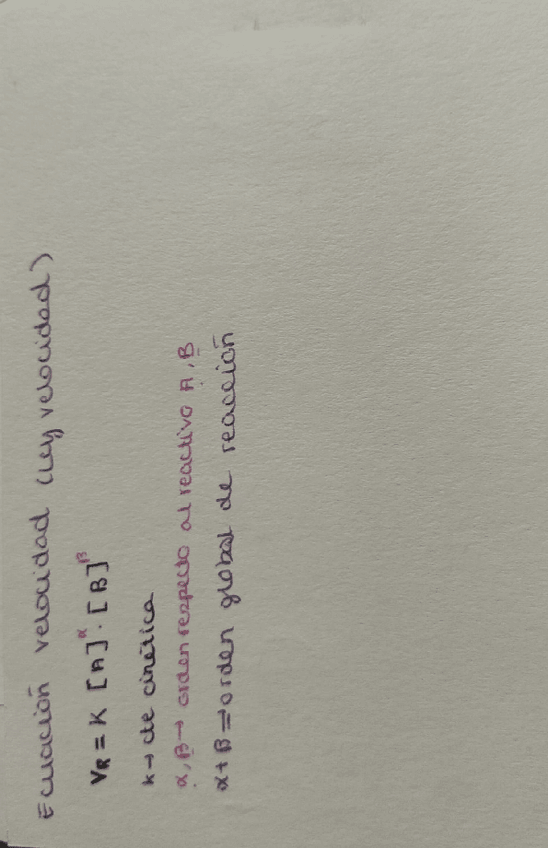 Ecuación velocidad (ley velocidad)
VR = K [A]^α · [B]^β
k → cte cinética
α, β → orden respecto al reactivo A, B
α + β = orden global de reacción